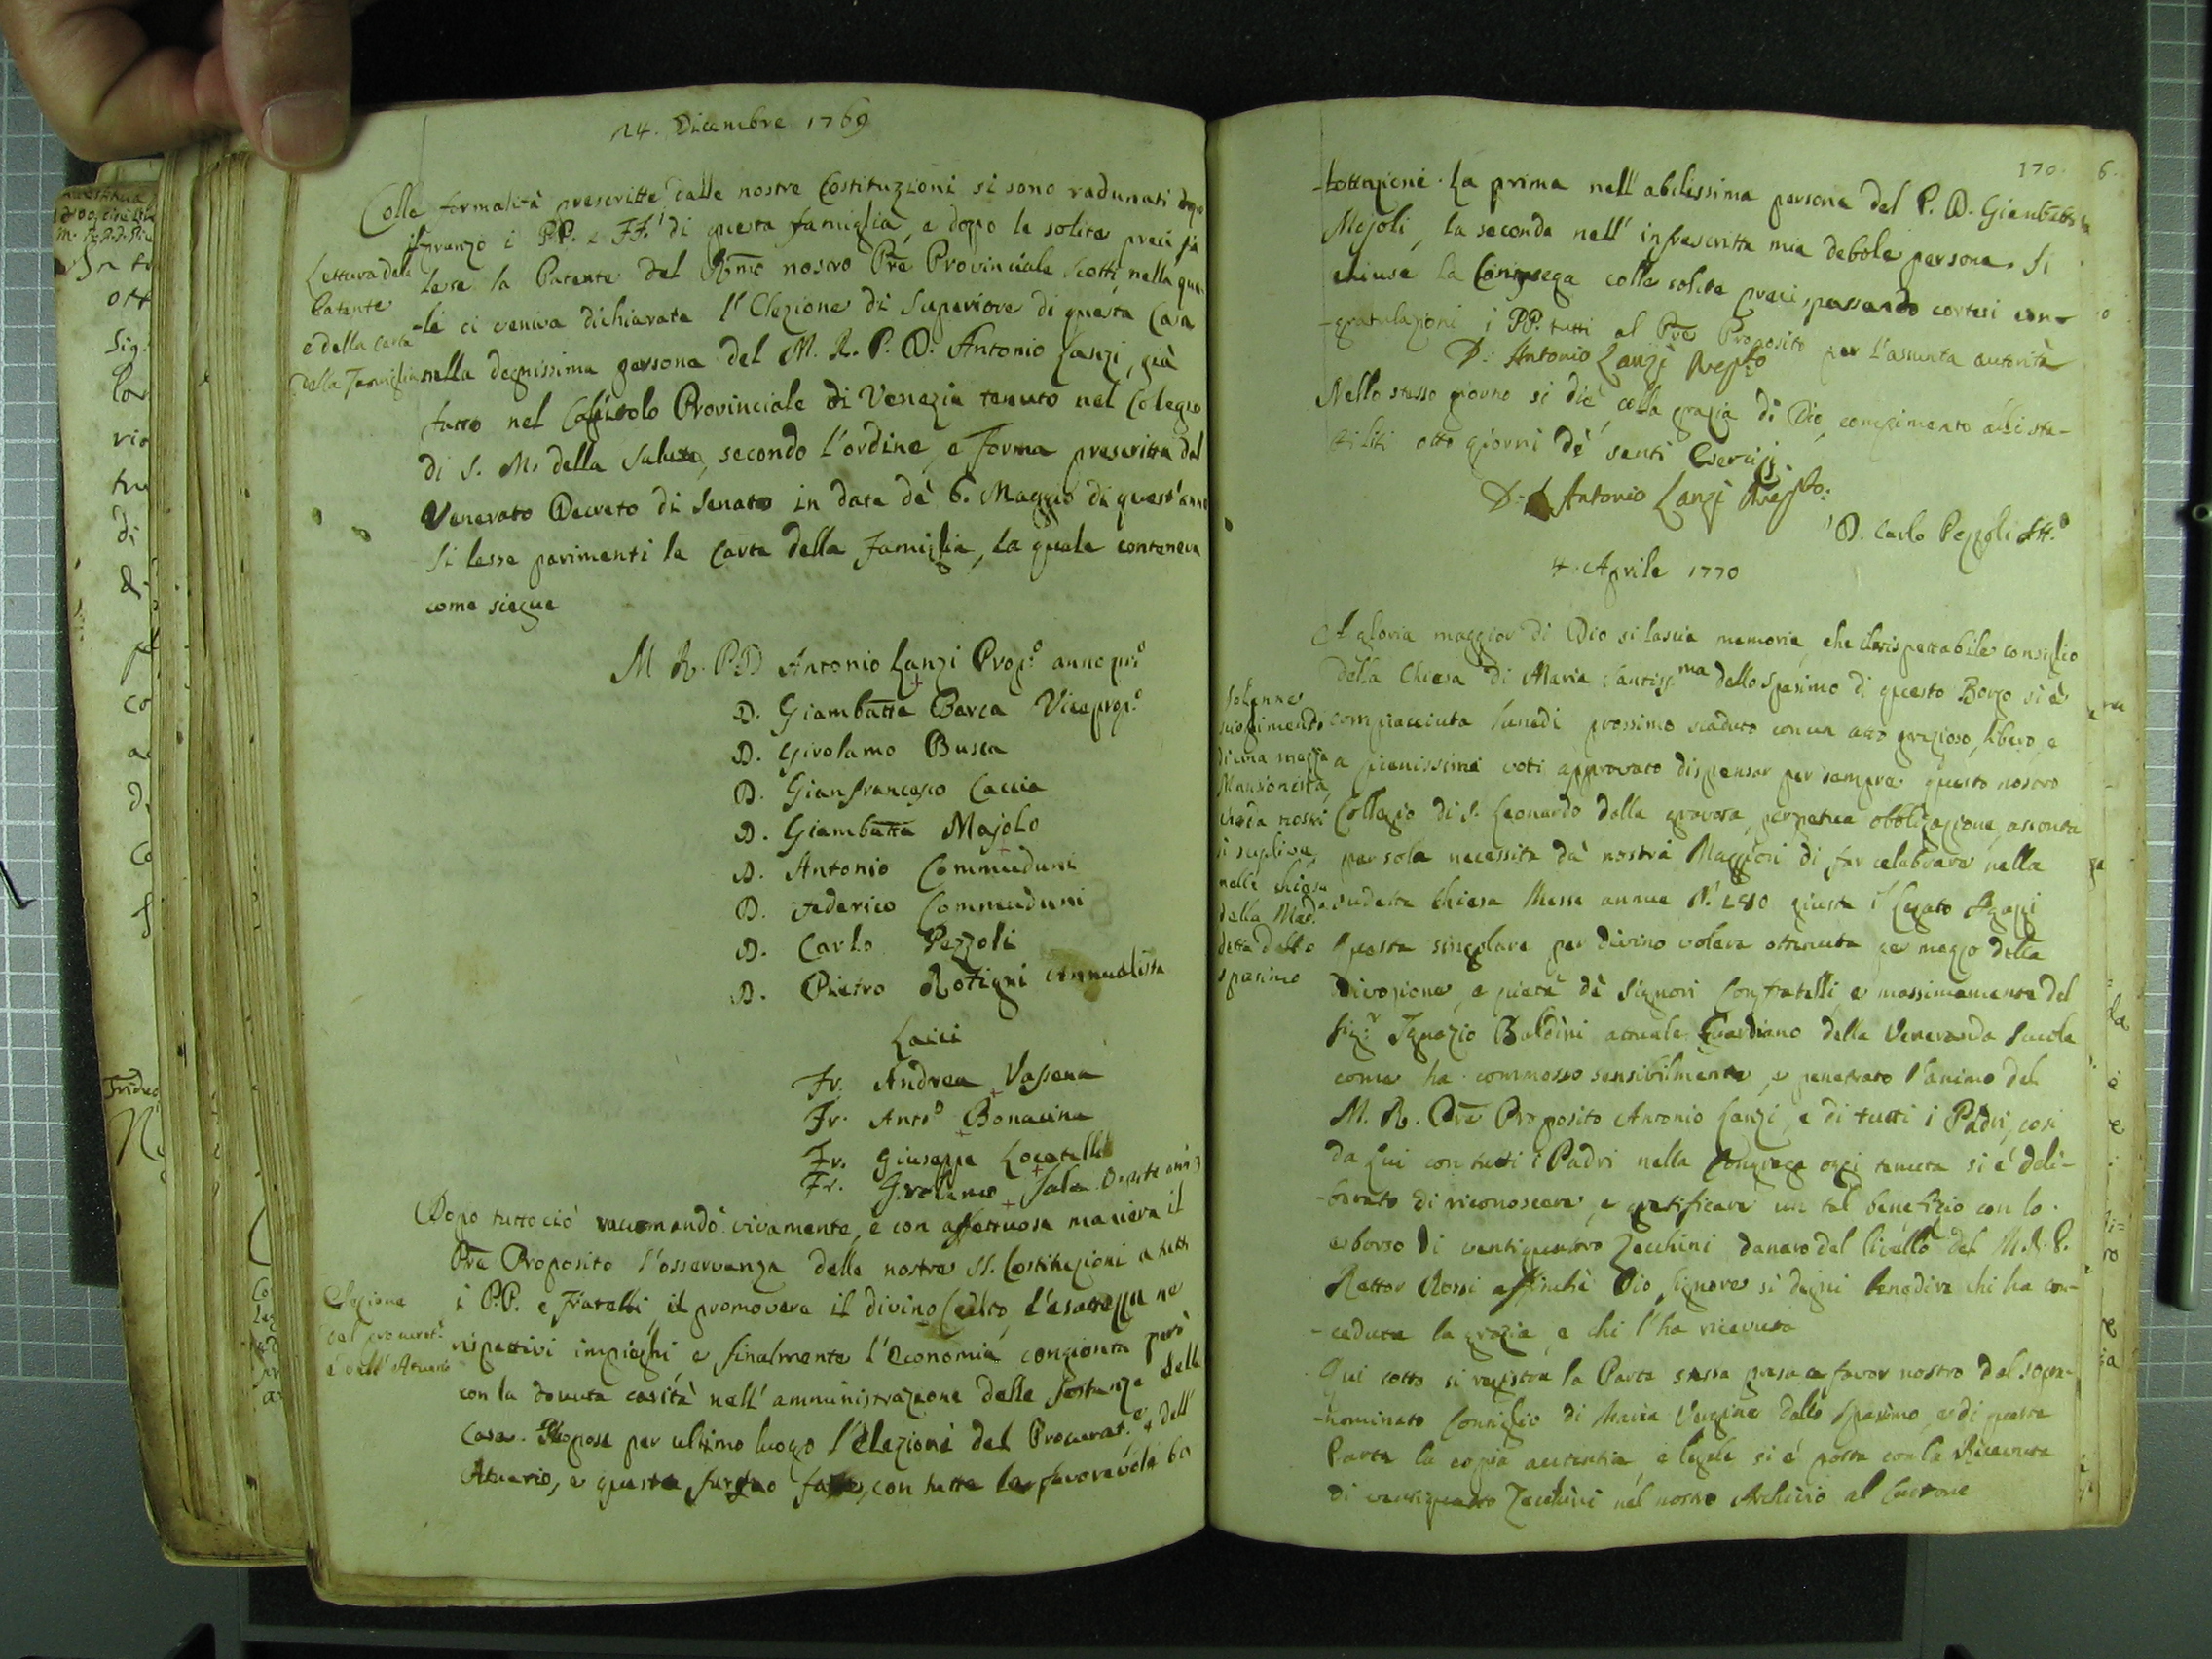 14. Dicembre 1769
Colle formalità prescritte dalle nostre Costituzioni si sono radunati dopo
il pranzo i PP. e FF. di questa famiglia, e dopo le solite preci fu
Lettura dela
Patente
e della Carta
della Famiglia
lesse la Patente del Rmo nostro Pre Provinciale Scotti, nella qua-
-le ci veniva dichiarata l'Elezione di Superiore di questa Casa
nella degnissima persona del M. R. P. D. Antonio Lanzi, già
fatto nel Capitolo Provinciale di Venezia tenuto nel Colegio
di S. M. della Salute, secondo l'ordine, e forma prescritta dal
Venerato Decreto di Senato in data dè 6. Maggio di quest'anno
Si lesse parimenti la Carta della Famiglia, la quale conteneva
come siegue
M R. P. D Antonio Lanzi Prop.o anno pr.o
D. Giambatta Barca Viceprop.o
D. Girolamo Busca
D. Gianfrancesco Caccia
D. Giambatta Majolo
D. Antonio Commenduni
D. Federico Commenduni
D. Carlo Pezzoli
D. Pietro Rotigni Annualista
Laici
Fr. Andrea Vassena
Fr. Anto Bonacina
Fr. Giuseppe Locatelli
Fr. Girolamo Sala
Dopo tutto ciò racomandò vivamente, e con affettuosa maniera il
Pre Proposito l'osservanza delle nostre SS. Costituzioni a tutti
Elezione
del procurat.e
e dell'Atuario
i P.P. e Fratelli, il promovere il divino Culto, l'esattezza ne
rispettivi impieghi, e finalmente l'economia congionta però
con la dovuta carità nell'amministrazione delle sostanze della
Casa. Propose per ultimo luogo l'elezioni del Procurat.e, e dell'
Atuario, e queste furono fatte, con tutta la favorevole ba
170.
-lottazione. La prima nell'abilissima persona del P. D. Giambatta
Mojoli, la seconda nell'infrascritta mia debole persona. Si
chiuse la Congrega colle solite preci, passando cortesi con-
-gratulazioni i PP. tutti al Pre Proposito per l'assunta autorità
D. Antonio Lanzi Prep.to
Nello stesso giorno si diè, colla grazia di Dio, compimento alli sta-
biliti otto giorni dè santi Esercizj.
D. Antonio Lanzi Prep.to:
D. Carlo Pezzoli Att.o
4. Aprile 1770
A gloria maggior di Dio si lascia memoria, che il rispettabile consiglio
della Chiesa di Maria Santiss.ma dello Spasimo di questo Borgo si è
Solenne
di una messa
Mansionaria,
che da nostri
si supliva
nella chiesa
della Mad.a
detta dello
spasimo
compiacciuta lunedì prossimo scaduto con un atto grazioso, libero, e
a pienissimi voti approvato dispensar per sempre questo nostro
Collegio di S. Leonardo dalla gravosa, perpetua obbligazione, assonta
per sola necessità dà nostri Maggiori di far celebrare nella
sudetta Chiesa Messe annue N.o 280 giusta il Legato Agazzi
Questa singolare per divino volere ottenuta per mezzo della
divozione, e pietà dè Signori Confratelli e massimamente del
Sig.r Ignazio Baldini attuale Guardiano della Veneranda Scuola
come ha commosso sensibilmente, e penetrato l'animo del
M. R. Pre Proposito Antonio Lanzi, e di tutti i Padri, così
da Lui con tutti i Padri nella Congrega oggi tenuta si è deli-
-berato di riconoscere, e gratificare un tal benefizio con lo
esborso di ventiquattro Zecchini danaro del livello del M. R. P.
Rettor Rossi affinchè Dio Signore si degni benedire chi ha con-
-ceduta la grazia, e chi l'ha ricevuta
Qui sotto si registra la Parte stessa presa a favor nostro dal sopra-
-nominato Consiglio di Maria Vergine dello Spasimo, e di questa
Parte la copia autentica, e legale si è posta con la Ricevuta
di ventiquattro Zecchini nel nostro Archivio al Cartone